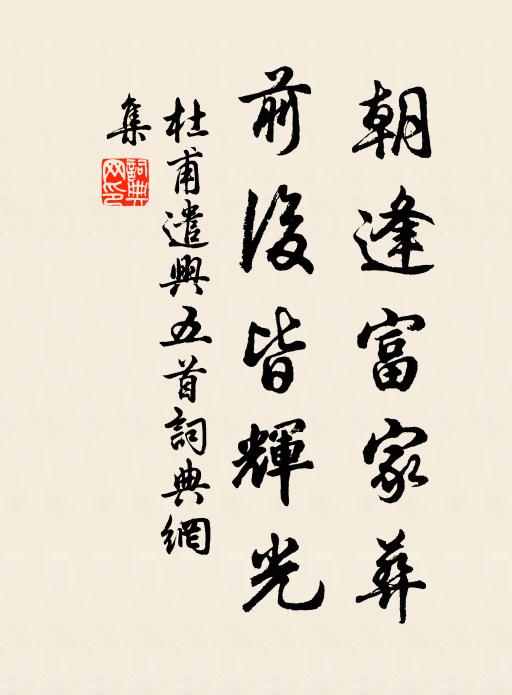 朝逢富家葬
前後皆輝光
杜甫遣興五首詞典網
集
詞典網印